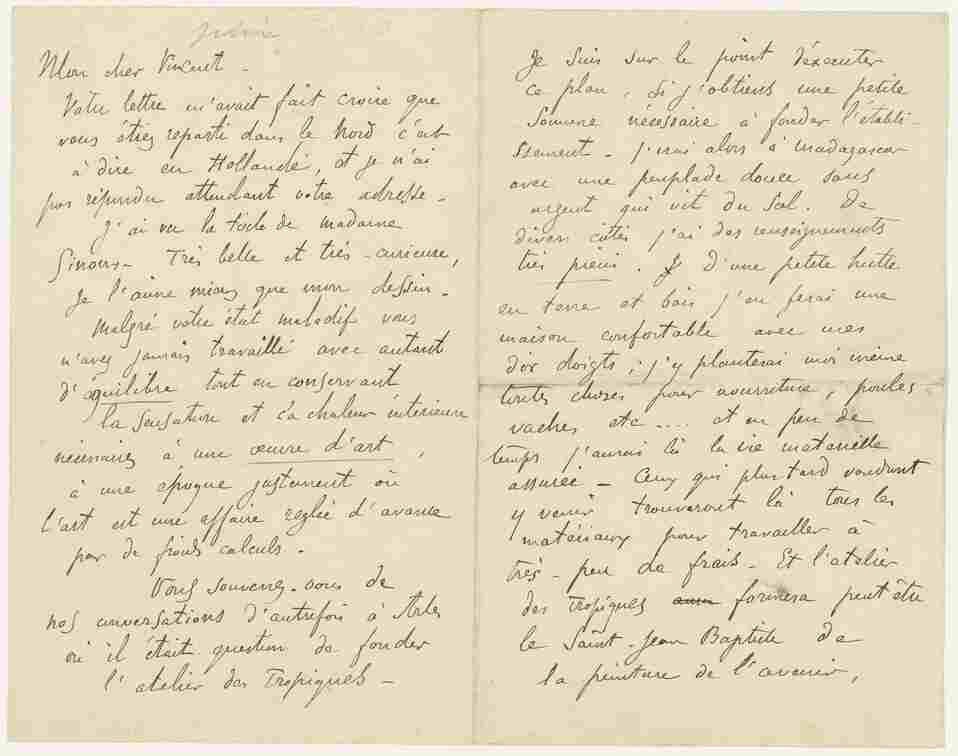 Mon cher Vincent -
Votre lettre m'avait fait croire que
vous étiez reparti dans le Nord c'est
à dire en Hollande, et je n'ai
pas répondu attendant votre adresse -
J'ai vu la toile de madame
Ginoux - Très belle et très curieuse,
je l'aime mieux que mon dessin -
Malgré votre état maladif vous
n'avez jamais travaillé avec autant
d'équilibre tout en conservant
la sensation et la chaleur intérieure
nécessaires à une œuvre d'art,
à une époque justement où
l'art est une affaire réglée d'avance
par de froids calculs -
Vous souvenez-vous de
nos conversations d'autrefois à Arles
où il était question de fonder
l'atelier des Tropiques -
Je suis sur le point d'éxecuter
ce plan, si j'obtiens une petite
somme nécéssaire à fonder l'établi-
ssement - J'irai alors à madagascar
avec une peuplade douce sans
argent qui vit du sol. De
divers côtés j'ai des renseignements
très précis. D'une petite hutte
en terre et bois j'en ferai une
maison confortable avec mes
dix doigts ; j'y planterai moi même
toutes choses pour nourriture, poules
vaches etc .... et en peu de
temps j'aurai là la vie matérielle
assurée - Ceux qui plus tard voudront
y venir trouveront là tous les
matériaux pour travailler à
très-peu de frais - Et l'atelier
des Tropiques formera peut être
le Saint-Jean Baptiste de
la peinture de l'avenir,